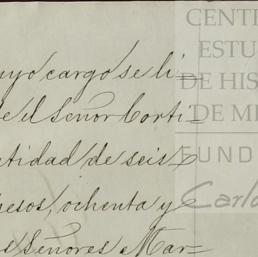 CENTR
ESTU
DE HIS
DE M
FUND
Carlo
uyo cargo se li=
e el Señor Corti
ntidad de seis=
pesos, ochenta y
s Señores Mar=